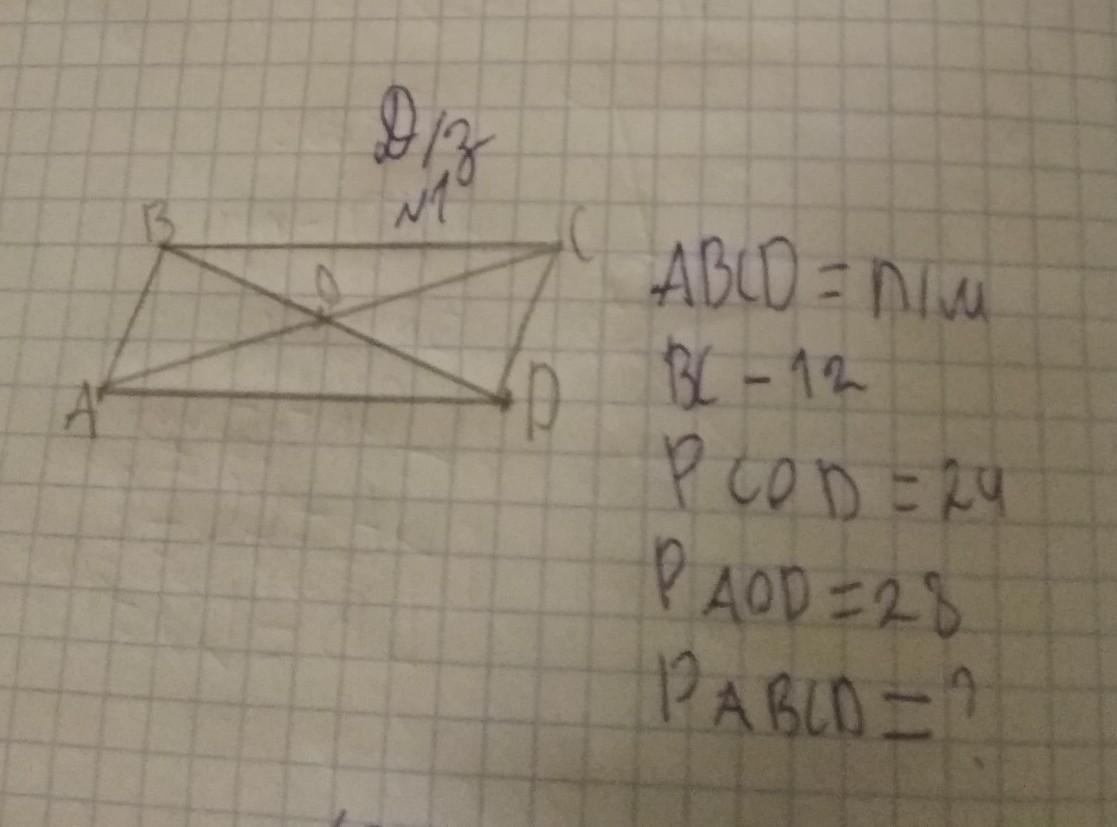 Д/з
№1
B
C
O
A
D
ABCD = п/м
BC - 12
P COD = 24
P AOD = 28
P ABCD = ?